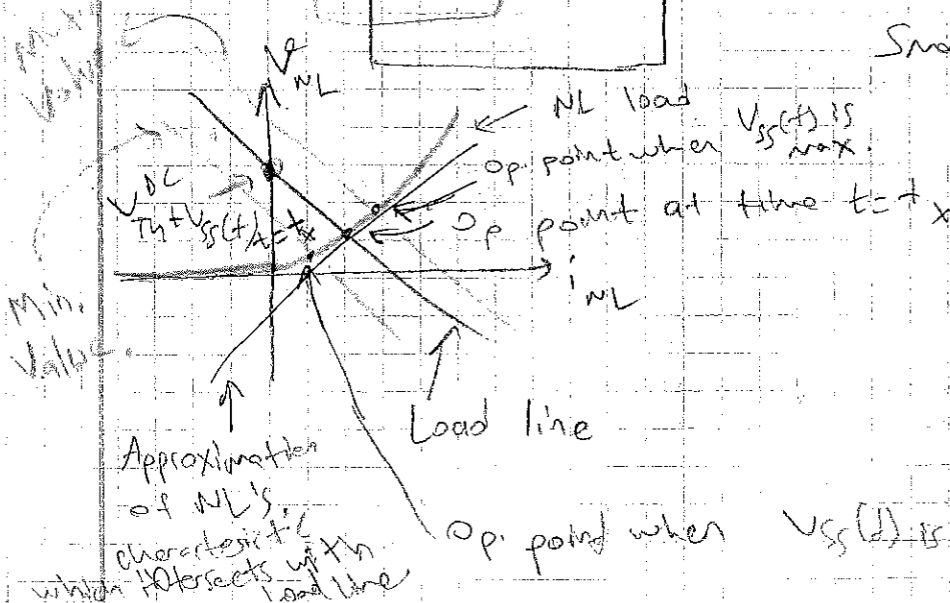 Max
Value
Smo
V
NL
NL load
Op. point when V_SS(t) is
max.
V^DC_Th + V_SS(t)|t=t_x
Op point at time t=t_x
i_NL
Min.
Value.
Load line
Approximation
of NL's
which intersects with
load line
Op. point when V_SS(t) is